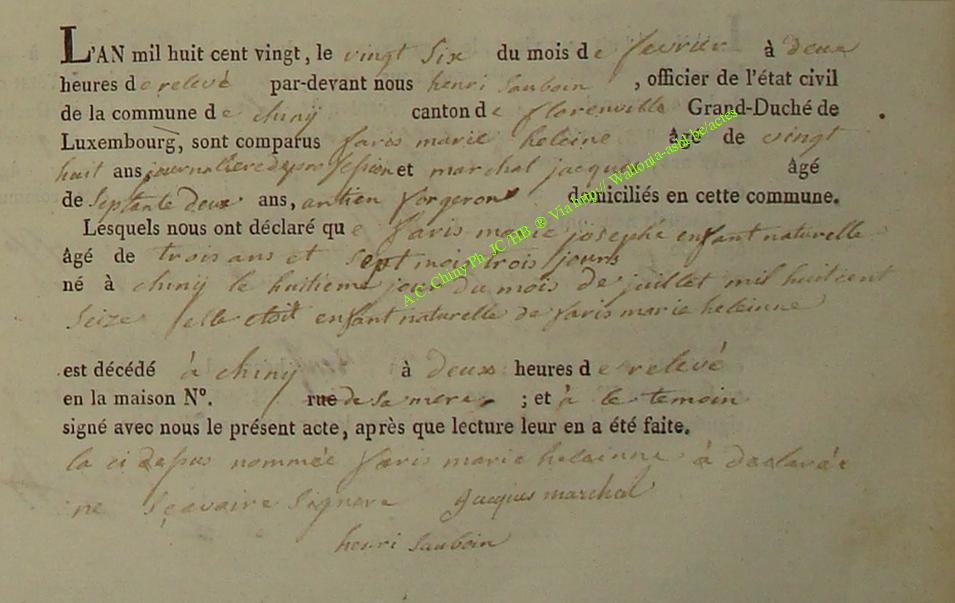 L'AN mil huit cent vingt, le vingt Six du mois de fevrier à deux
heures de relevé par-devant nous henri Sauboin , officier de l'état civil
de la commune de chiny canton de florenville Grand-Duché de
Luxembourg, sont comparus faris marie heleine âgé de vingt
huit ans, journaliere de profession et marchal jacques âgé
de Septante deux ans, antien forgeron domiciliés en cette commune.
Lesquels nous ont déclaré que faris marie josephe enfant naturelle
âgé de trois ans et sept mois trois jours
né à chiny le huitieme jour du mois de juillet mil huit cent
Seize elle etoit enfant naturelle de faris marie heleinne
est décédé à chiny à deux heures de relevé
en la maison N°. rue de sa mere ; et à le temoin
signé avec nous le présent acte, après que lecture leur en a été faite.
la ci depus nommée faris marie heleinne à declarée
ne sçavoire Signere Jacques marchal
henri Sauboin
A.C. Chiny Ph. JC HB ® Via http:// Wallonia-asbl.be/actes